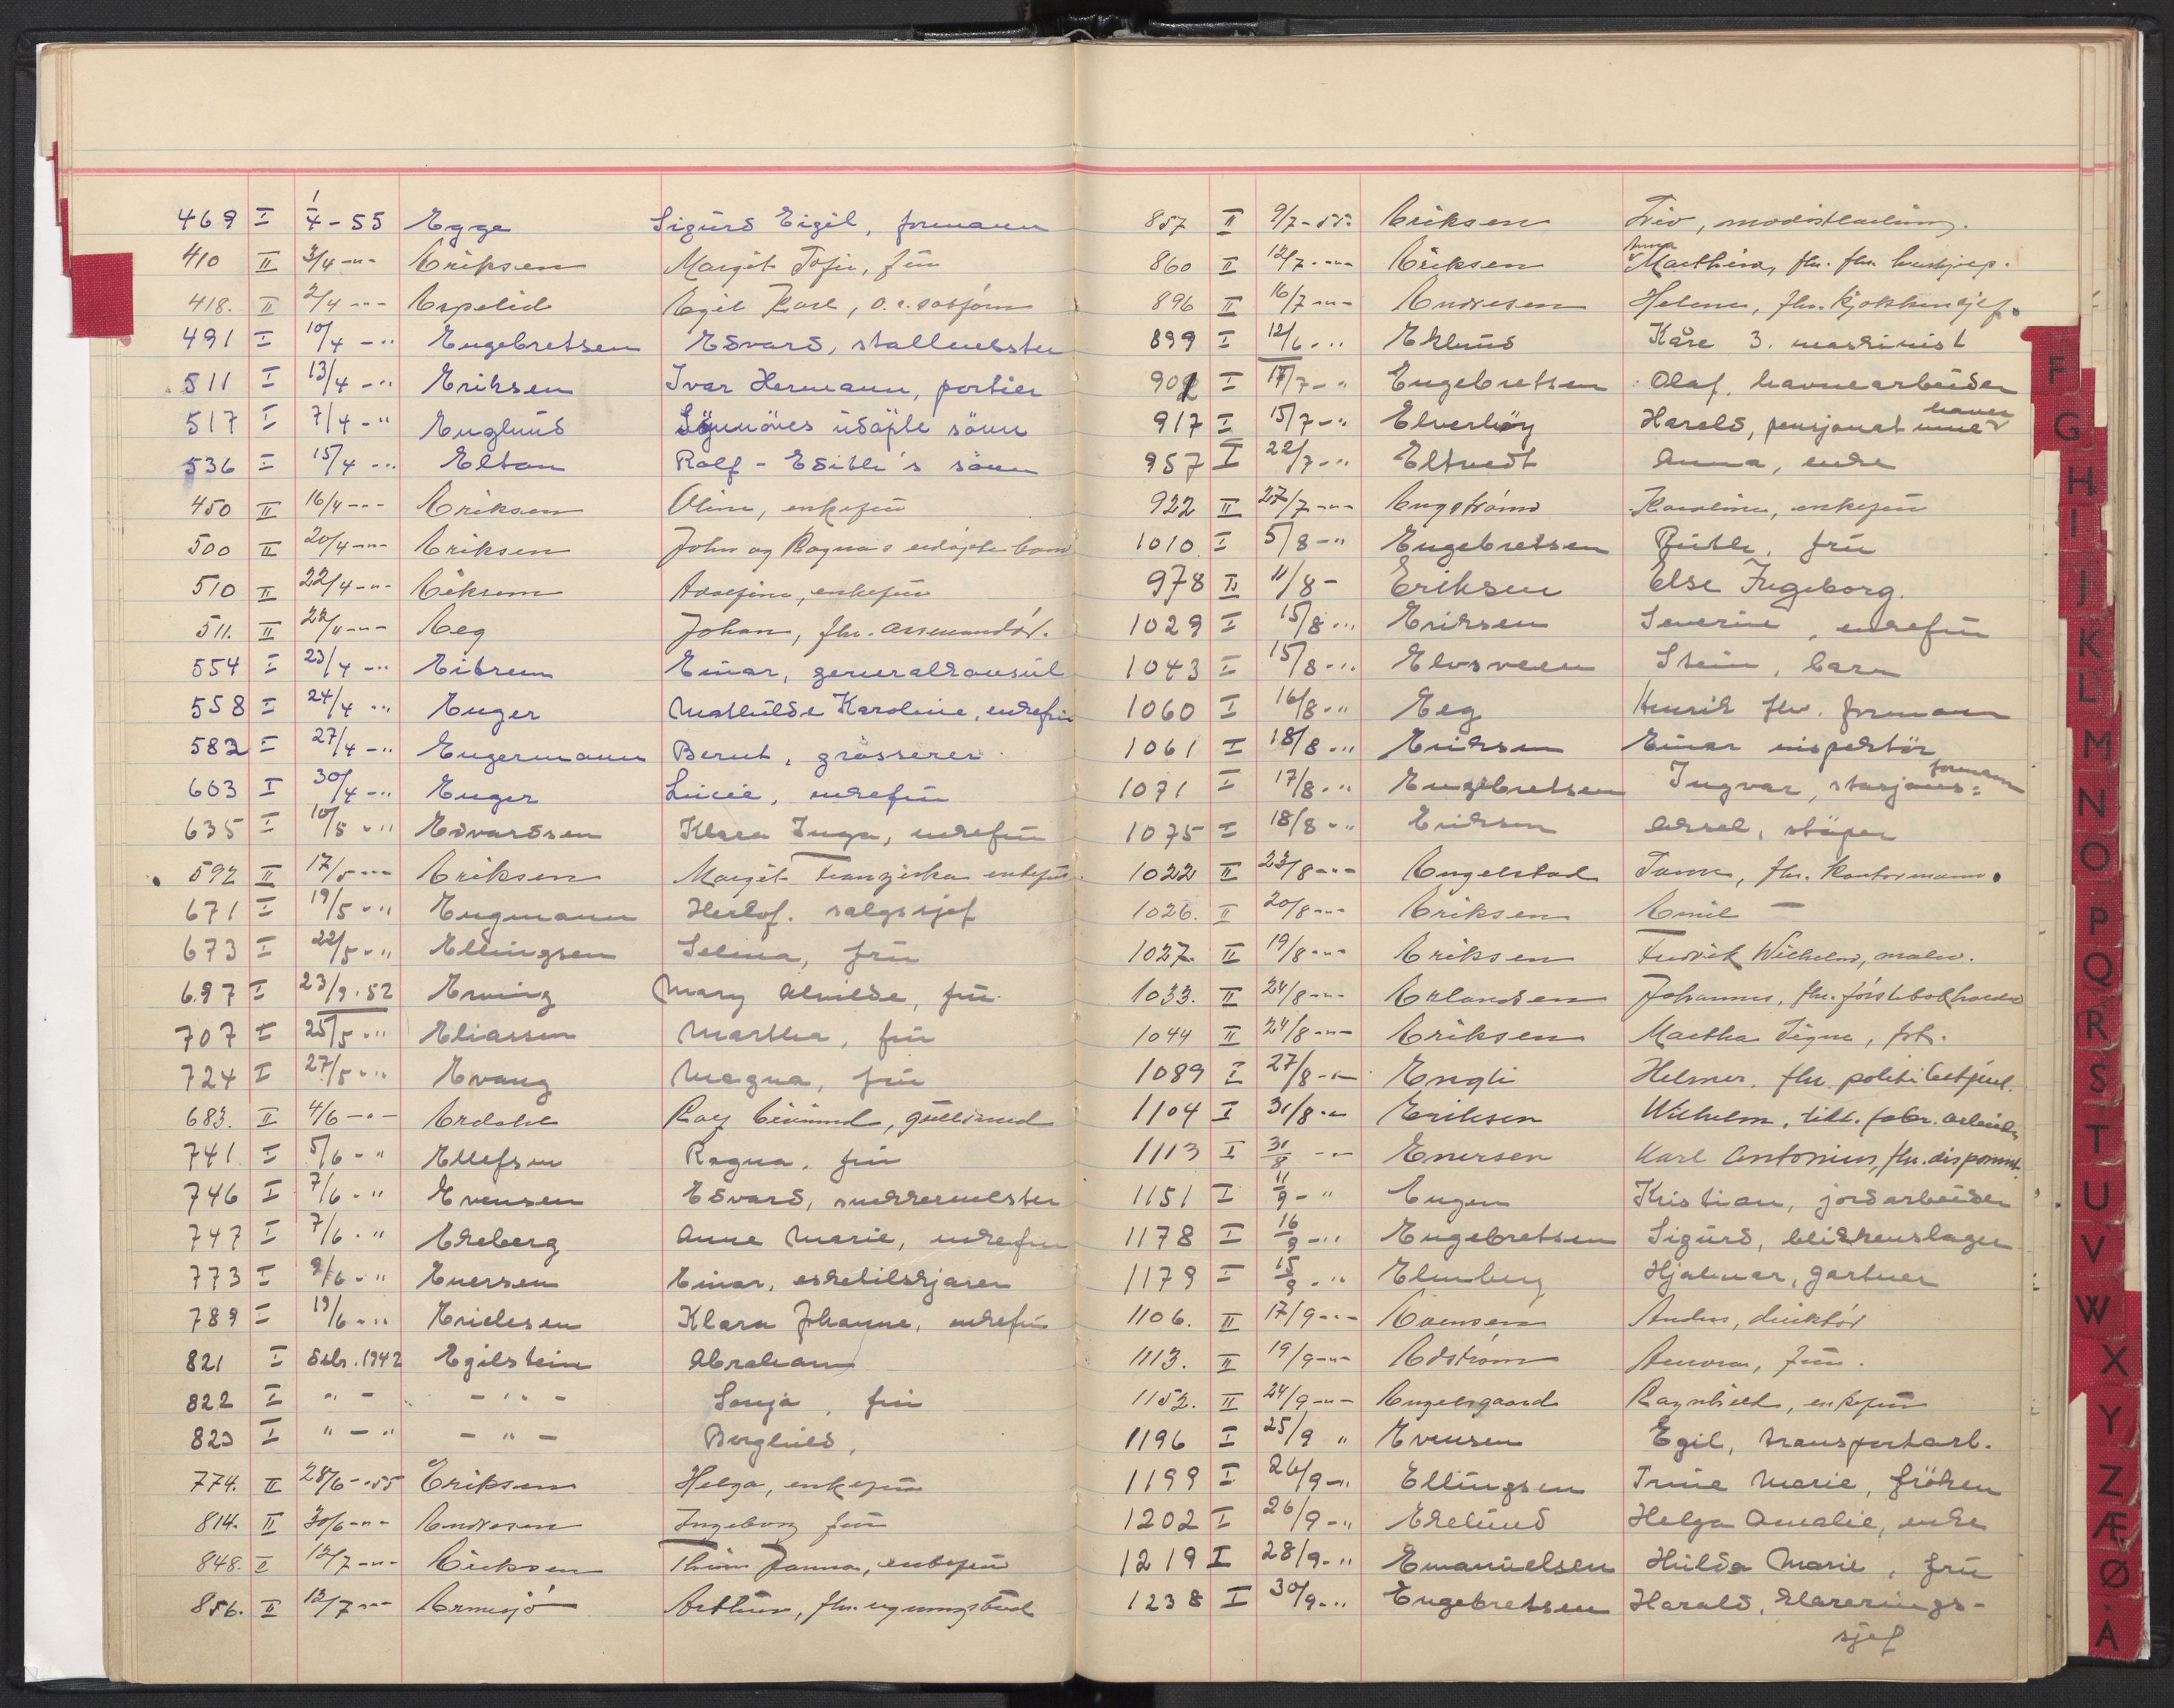 469 I 1/4-55 Egge Sigurd Eigil, formann
410 II 3/4 -"- Eriksen Margit Sofie, frü
418. II 2/4 -"- Espelid Egil Karl,
491 I 10/4 -" Engebretsen Edvard, stallmester
511 I 13/4 -" Eriksen Ivar Hermann, portier
517 I 7/4 -" Englund Synnöves udöpte sönn
536 I 15/4 -" Elton Rolf - Edith's sönn
450 II 16/4 -"- Eriksen Oline, enkefrü
500 II 20/4 -"- Eriksen John og Ragnas udöpte barn
510 II 22/4 -"- Eriksen Josefine, enkefrü
511. II 22/4 -"- Eeg Johan, fhv.
554 I 23/4 -" Eitrem Einar, generalkonsul
558 I 24/4 -" Enger Mathilde Karoline, enkefrü
582 I 27/4 -" Engermann Bernt, grosserer
603 I 30/4 -" Enger Lucie, enkefrü
635 I 10/5 -" Edvardsen Klara Inga, enkefrü
592 II 17/5 -"- Eriksen Margit Franziska enkefrü
671 I 19/5 -" Engmann Herlof. salgssjef
673 I 22/5 -" Ellingsen Selma, frü
697 I 23/9.52 Erwing Mary Alvilde, frü
707 I 25/5 -" Eliassen Martha, frü
724 I 27/5 -" Evang Magna, frü
683. II 4/6 -"- Erdahl Roy Eivind, gullsmed
741 I 5/6 -" Ellefsen Ragna, frü
746 I 7/6 -" Evensen Edvard, snekkermester
747 I 7/6 -" Ekeberg Anne Marie, enkefrü
773 I 9/6 -" Enersen Einar, eskebilskjører
789 I 19/6 -" Ericksen Klara Johanne, enkefrü
821 I Febr. 1942 Egilstein Abraham
822 I " - - " - Sonja, frü
823 I " - " - " - Berghild,
774. II 28/6 -55 Eriksen Helga, enkefrü
814. II 30/6 -"- Andresen Ingeborg frü
848. II 12/7 -"- Eriksen Janna, enkefrü
856. II 12/7 -"- Ermesjö Arthur, fhv.
857 II 9/7-55. Eriksen Siv,
860 II 12/7 -"- Eriksen Anna Mathina, fhv.
896 II 16/7 -"- Endresen Helene, fhv. kjøkkensjef.
899 I 12/6 -" Eklund Kåre 3. maskinist
902 I 17/7 -" Engebretsen Olaf, havnearbeider
917 I 15/7 -" Elverhöy Harald, pensjonat
957 I 22/7 -" Eltvedt Anna, enke
922 II 27/7 -"- Engströms Karoline, enkefrü
1010 I 5/8 -" Engebretsen Ruth, frü
978 II 11/8 - Eriksen Else Ingeborg.
1029 I 15/8 -" Eriksen Severine, enkefrü
1043 I 15/8 -" Elvsveen Stein, barn
1060 I 16/8 -" Eeg Henrik fhv. formann
1061 I 18/8 -" Eriksen Einar inspektör
1071 I 17/8 -" Engebretsen Ingvar, stasjons= formann
1075 I 18/8 -" Eriksen Aksel, stöper
1022 II 23/8 -"- Engelstad Tom, fhv. kontormann.
1026. II 20/8 -"- Eriksen Emil -
1027. II 19/8 -"- Eriksen Fredrik Wilhelm, maler.
1033. II 24/8 -"- Erlandsen Johannes, fhv. förstebokholder
1044 II 24/8 -"- Eriksen Martha Signe, frk.
1089 I 27/8 -"- Engli Helmer, fhv. politibetjent.
1104 I Eriksen Wilhelm, fabr. arbeider
1113 I 31/8 -"- Enersen Karl Antonius, fhv. disponent.
1151 I 11/9 -" Engen Kristian, jordarbeider
1178 I 16/9 -" Engebretsen Sigurd, blikkenslager
1179 I 15/9 -" Elmberg Hjalmar, gartner
1106. II 17/9 -"- Evensen Anders, direktör
1113. II 19/9 -"- Edström Aurora, frü.
1152. II 24/9 -"- Engelsgaard Ragnhild, enkefrü
1196 I 25/9 " Evensen Egil, transportarb.
1199 I 26/9 -" Ellingsen Trine Marie, fröken
1202 I 26/9 -" Ekelund Helga Amalie, enke
1219 I 28/9 -" Emanuelsen Hulda Marie, frü
1238 I 30/9 -" Engebretsen Harald, klarerings-
sjef
F
G
H
I
J
K
L
M
N
O
P
Q
R
S
T
U
V
W
X
Y
Z
Æ
Ø
Å